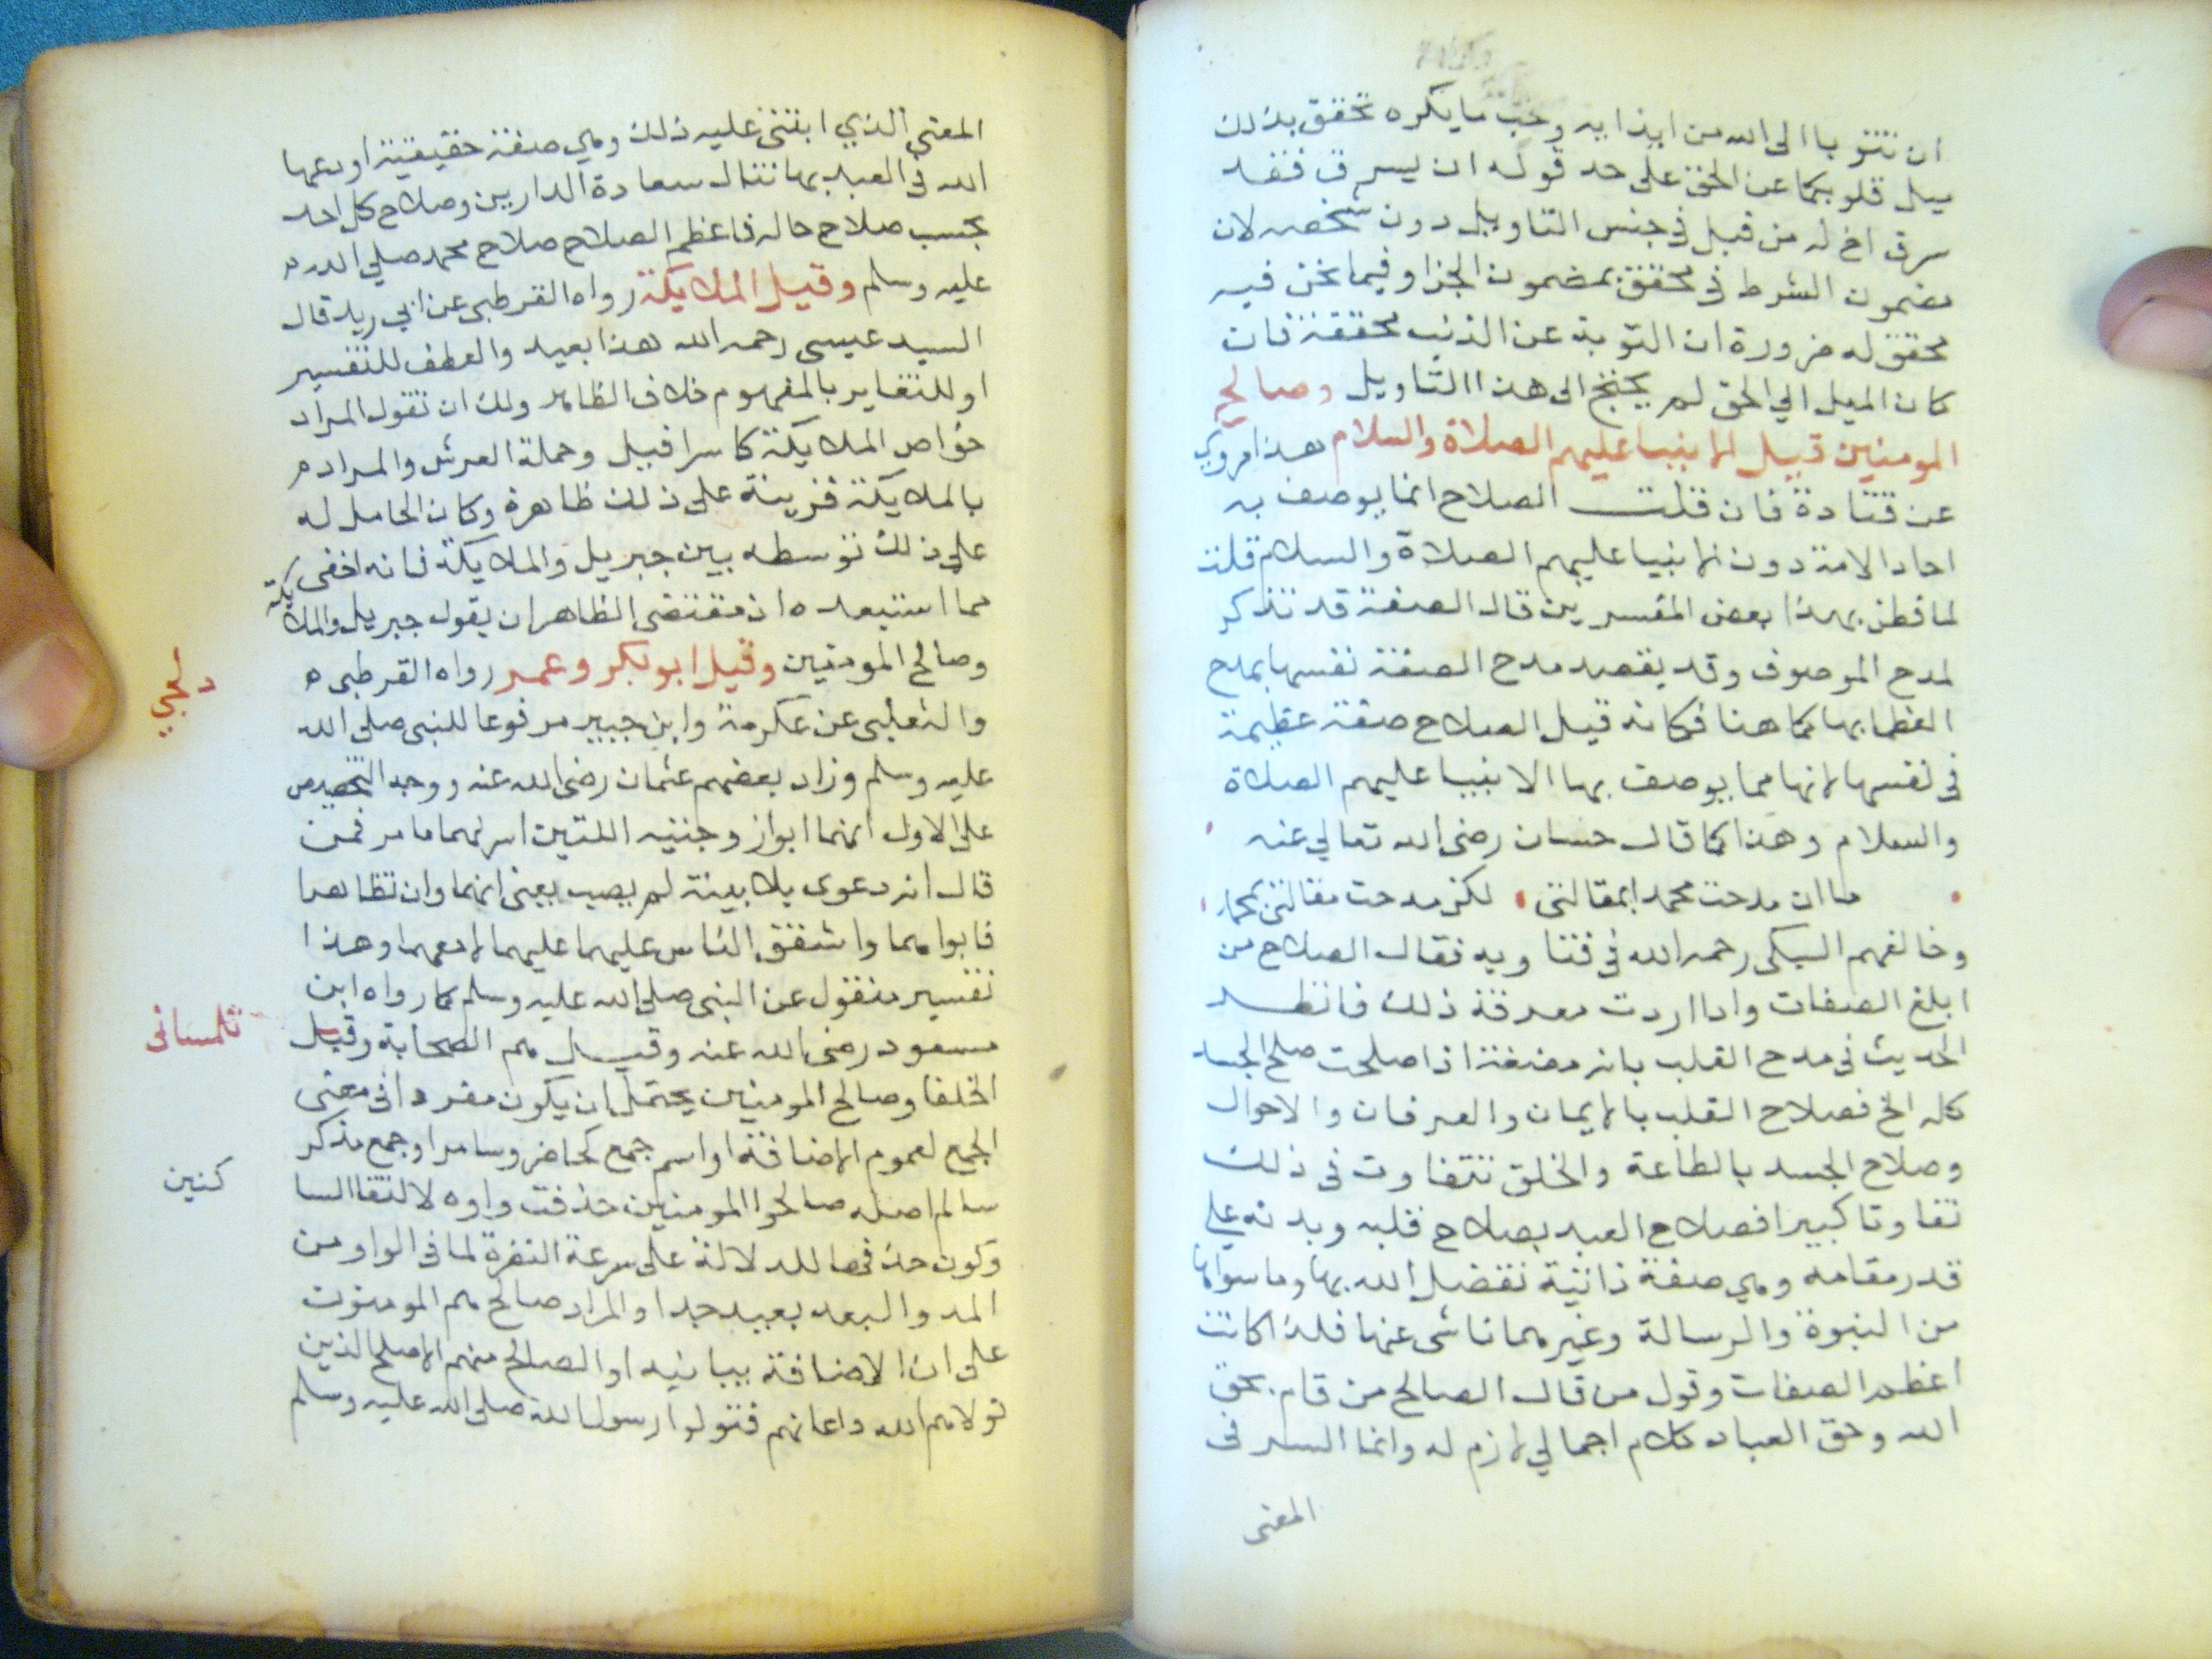 ان تتوبا الى الله من ايذايه وحب ما يكره تحقق بذلك
ميل قلوبكما عن الحق على حد قوله ان يسرق فقد
سرق اخ له من قبل في جنس التاويل دون شخصه لان
مضمون الشرط في محقق بمضمون الجزا وفيما نحن فيه
محقق له ضرورة ان التوبة عن الذنب محققة فان
كان الميل الي الحق لم يحتج الى هذا التاويل وصالح
المومنين قيل الانبيا عليهم الصلاة والسلام هذا مروي
عن قتادة فان قلت الصلاح انما يوصف به
احاد الامة دون الانبيا عليهم الصلاة والسلام قلت
لما فطن بهذا بعض المفسرين قال الصفة قد تذكر
لمدح الموصوف وقد يقصد مدح الصفة نفسها بمدح
العظما بها كما هنا فكانه قيل الصلاح صفة عظيمة
في نفسها لانها مما يوصف بها الانبيا عليهم الصلاة
والسلام وهذا كما قال حسان رضي الله تعالي عنه
ما ان مدحت محمدا بمقالتي لكن مدحت مقالتي بمحمد
وخالفهم السبكي رحمه الله في فتاويه فقال الصلاح من
ابلغ الصفات واذا اردت معرفة ذلك فانظر
الحديث في مدح القلب بانه مضغة اذا صلحت صلح الجسد
كله الخ فصلاح القلب بالايمان والعرفان والاحوال
وصلاح الجسد بالطاعة والخلق تتفاوت في ذلك
تفاوتا كبيرا فصلاح العبد بصلاح قلبه وبدنه علي
قدر مقامه وهي صفة ذاتية تفضل الله بها وما سواها
من النبوة والرسالة وغيرهما ناشى عنها فلذا كانت
اعظم الصفات وقول من قال الصالح من قام بحق
الله وحق العباد كلام اجمالي لازم له وانما السر في
المعنى
المعنى الذي ابتنى عليه ذلك وهي صفة حقيقية اودعها
الله في العبد بها تنال سعادة الدارين وصلاح كل احد
بحسب صلاح حاله فاعظم الصلاح صلاح محمد صلي الله
عليه وسلم وقيل الملايكة رواه القرطبي عن ابي زيد قال
السيد عيسى رحمه الله هذا بعيد والعطف للتفسير
او للتغاير بالمفهوم خلاف الظاهر ولك ان تقول المراد
خواص الملايكة كاسرافيل وحملة العرش والمراد
بالملايكة قرينة على ذلك ظاهرة وكان الحامل له
علي ذلك توسطه بين جبريل والملايكة فانه اخفى
مما استبعده اذ مقتضى الظاهر ان يقول جبريل والملايكة
وصالح المومنين وقيل ابوبكر وعمر رواه القرطبي
والثعلبي عن عكرمة وابن جبير مرفوعا للنبى صلى الله
دلجي
عليه وسلم وزاد بعضهم عثمان رضى الله عنه ووجه التخصيص
على الاول انهما ابوا زوجتيه اللتين اسر لهما ما مر فمن
قال انه دعوى بلا بينة لم يصب يعنى انهما وان تظاهرا
فابواهما واشفق الناس عليهما عليهما لا معهما وهذا
تفسير منقول عن النبى صلى الله عليه وسلم كما رواه ابن
مسعود رضى الله عنه وقيل هم الصحابة وقيل
تلمسانى
الخلفا وصالح المومنين يحتمل ان يكون مفردا في معنى
الجمع لعموم الاضافة او اسم جمع كحاضر وسامر او جمع مذكر
سالم اصله صالحوا المومنين حذفت واوه لالتقا السا
كنين
وكون حذفها للدلالة على سرعة النفرة لما في الواو من
المد والبعد بعيد جدا والمراد صالح هم المومنون
على ان الاضافة بيانيه او الصالح منهم الاصلح الذين
تولاهم الله واعانهم فتولوا رسول الله صلى الله عليه وسلم